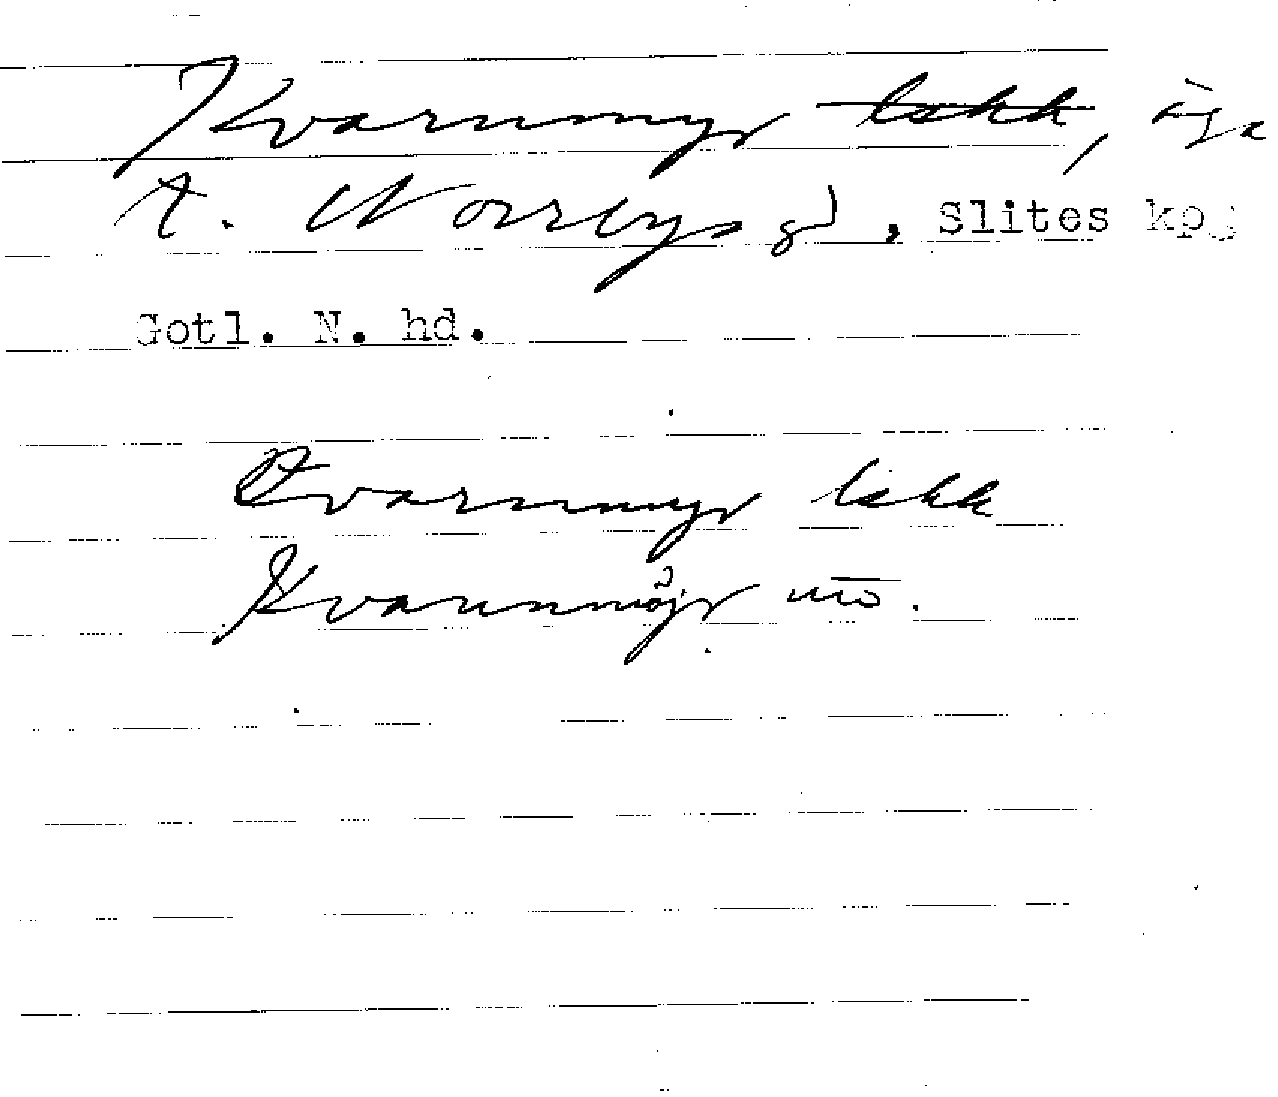 Kvarnmyr lskk, äga
t. Norrbys gd, Slites kp;
Gotl. N. hd.
Qvarnmyr lskk
Kvarnmöjr